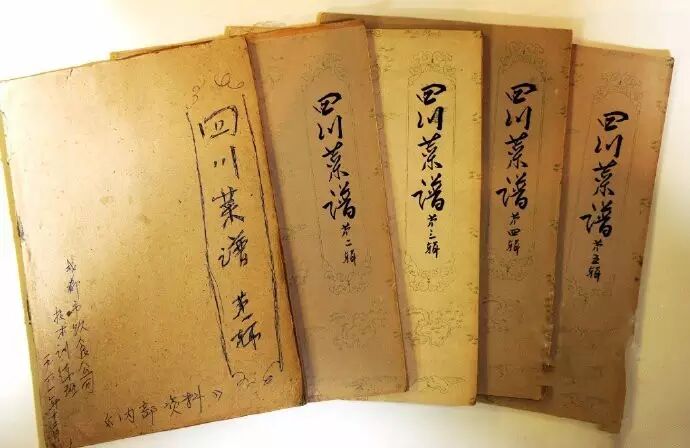 四川菜谱 第一辑
成都市饮食公司
技术训练班
《内部资料》
四川菜谱 第二辑
四川菜谱 第三辑
四川菜谱 第四辑
四川菜谱 第五辑